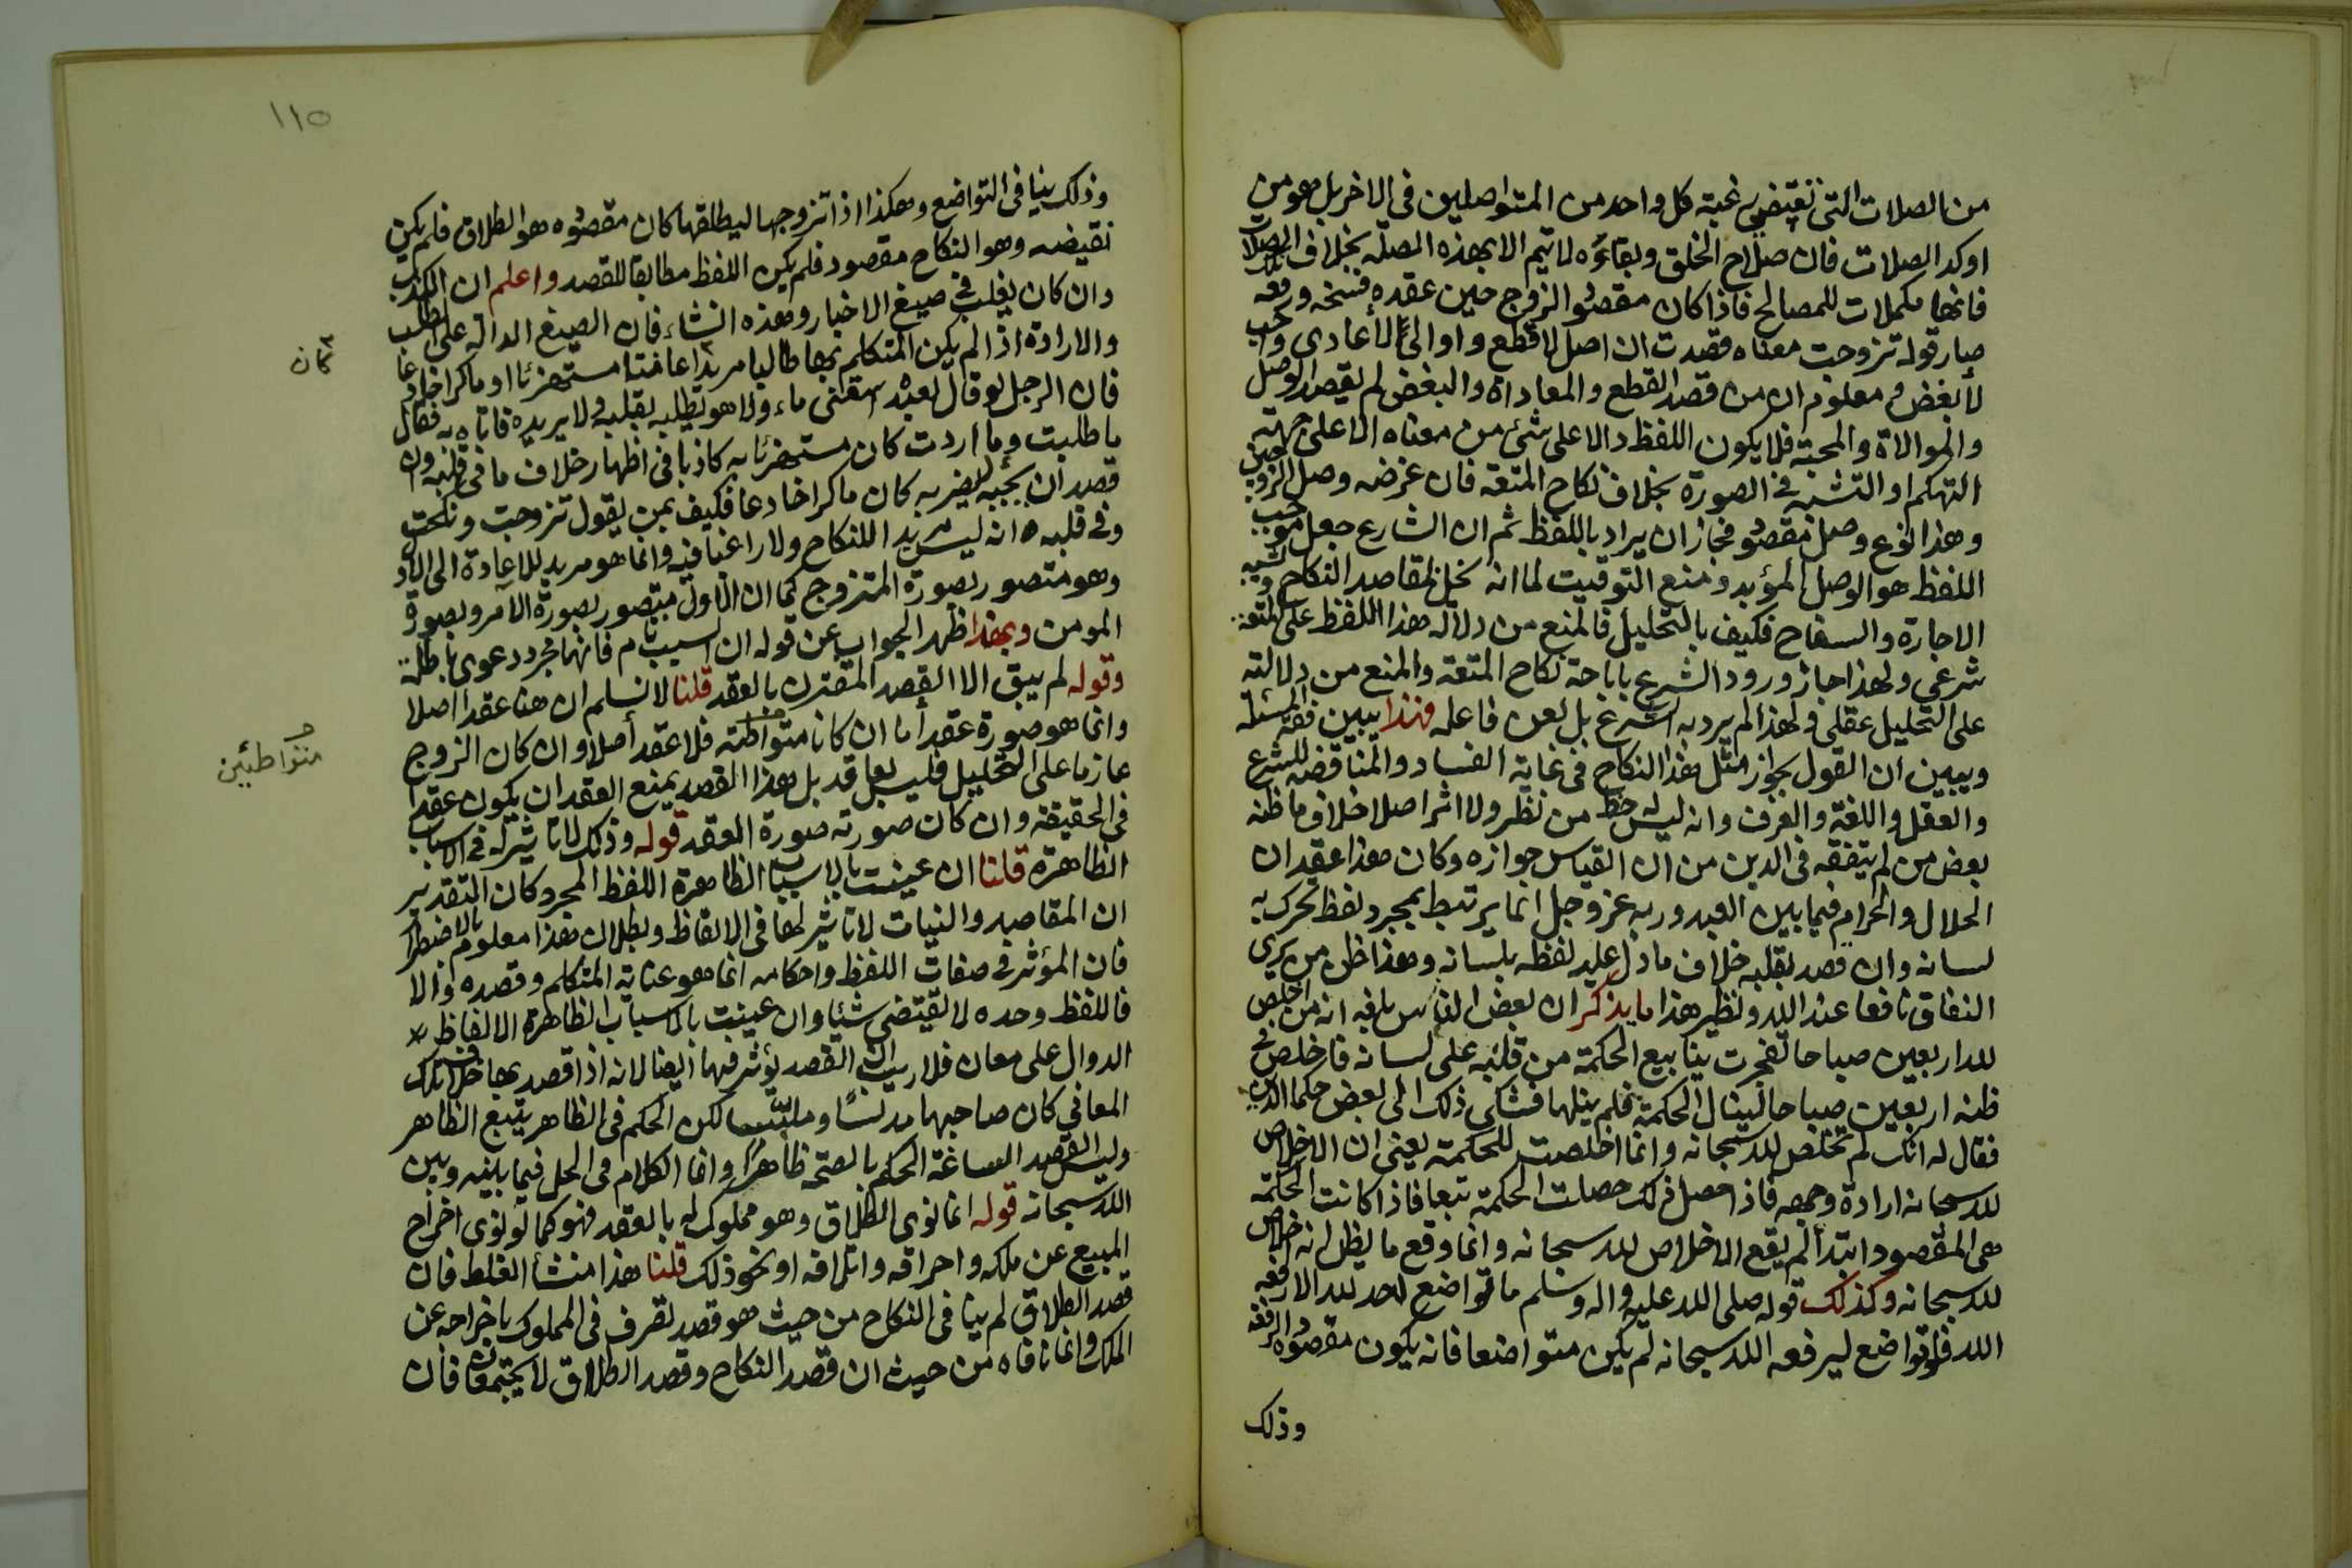 من الصلات التى تقتضى رغبة كل واحد من المتواصلين فى الاخر بل هو من
اوكد الصلات فان صلاح الخلق وبقاءه لا يتم الا بهذه الصلة بخلاف تلك الصلات
فانها مكملات للمصالح فاذا كان مقصود الزوج حين عقده فسخه ورفعه
صار قوله تزوجت معناه قصدت ان اصل لاقطع واوالى لأعادى واحب
لأبغض ومعلوم ان من قصد القطع والمعاداة والبغض لم يقصد الوصل
والموالاة والمحبة فلا يكون اللفظ دالا على شئ من معناه الا على جهة
التهكم او التشبه فى الصورة بخلاف نكاح المتعة فان غرضه وصل الزوج لحين
وهذا نوع وصل مقصود فجاز ان يراد باللفظ ثم ان الشارع جعل موجب
اللفظ هو الوصل المؤبد ومنع التوقيت لما انه يخل بمقاصد النكاح وشبيه
الاجارة والسفاح فكيف بالتحليل فالمنع من دلالة هذا اللفظ على المتعة
شرعى ولهذا جاز ورود الشرع باباحة نكاح المتعة والمنع من دلالته
على التحليل عقلى ولهذا لم يرد به الشرع بل لعن فاعله فهذا يبين فقه المسئلة
ويبين ان القول بجواز مثل هذا النكاح فى غاية الفساد والمناقضة للشرع
والعقل واللغة والعرف وانه ليس له حظ من نظر ولا اثر اصلا خلاف ما ظنه
بعض من لم يتفقه فى الدين من ان القياس جوازه وكان هذا عقد ان
الحلال والحرام فيما بين العبد وربه عز وجل انما يرتبط بمجرد لفظ تحرك به
لسانه وان قصد بقلبه خلاف ما دل عليه لفظه بلسانه وهذا ظن من يرى
النفاق نافعا عند الله ونظير هذا ما يذكر ان بعض الناس بلغه انه من اخلص
لله اربعين صباحا تفجرت ينابيع الحكمة من قلبه على لسانه فاخلص فى
ظنه اربعين صباحا لينال الحكمة فلم ينلها فشكى ذلك الى بعض حكماء الدين
فقال له انك لم تخلص لله سبحانه وانما اخلصت للحكمة يعنى ان الاخلاص
لله سبحانه ارادة وجهه فاذا حصل ذلك حصلت الحكمة تبعا فاذا كانت الحكمة
هى المقصود ابتدأ لم يقع الاخلاص لله سبحانه وانما وقع ما يظن انه اخلاص
لله سبحانه وكذلك قوله صلى الله عليه واله وسلم ما تواضع احد لله الا رفعه
الله فلو تواضع ليرفعه الله سبحانه لم يكن متواضعا فانه يكون مقصوده الرفعة
وذلك
١١٥
وذلك ينافى التواضع وهكذا اذا تزوجها ليطلقها كان مقصوده هو الطلاق فلم يكن
نقيضه وهو النكاح مقصود فلم يكن اللفظ مطابقا للقصد واعلم ان الكذب
وان كان يغلب فى صيغ الاخبار وهذه انشاء فان الصيغ الدالة على الطلب
والارادة اذا لم يكن المتكلم بها طالبا مريدا عابثا مستهزئا او ماكرا خادعا
كان
فان الرجل لو قال لعبده اسقنى ماء ولا هو يطلبه بقلبه ولا يريده فاتاه به فقال
ما طلبت وما اردت كان مستهزئا به كاذبا فى اظهار خلاف ما فى قلبه وان
قصد ان يجيبه ليضربه كان ماكرا خادعا فكيف بمن يقول تزوجت ونكحت
وفى قلبه انه ليس مريدا للنكاح ولا راغبا فيه وانما هو مريد للاعادة الى الاول
وهو متصور بصورة المتزوج كما ان الاول متصور بصورة الآمر وبصورة
المومن وبهذا ظهر الجواب عن قوله ان السبب تام فانها مجرد دعوى باطلة
وقوله لم يبق الا القصد المقترن بالعقد قلنا لا نسلم ان هنا عقدا اصلا
وانما هو صورة عقد أما ان كانا متواطئة فلا عقد أصلا وان كان الزوج
متواطئين
عازما على التحليل فليس بعاقد بل هذا القصد يمنع العقد ان يكون عقدا
فى الحقيقة وان كان صورته صورة العقد قوله وذلك لا تاثير له فى الاسباب
الظاهرة قلنا ان عنيت بالاسباب الظاهرة اللفظ المجرد كان التقدير
ان المقاصد والنيات لا تاثير لها فى الالفاظ وبطلان هذا معلوم بالاضطرار
فان المؤثر فى صفات اللفظ واحكامه انما هو عناية المتكلم وقصده والا
فاللفظ وحده لا يقتضى شيئا وان عنيت بالاسباب الظاهرة الالفاظ
الدوال على معان فلا ريب ان القصد يؤثر فيها ايضا لانه اذا قصد بها خلاف تلك
المعانى كان صاحبها مدلسًا وملبّسا لكن الحكم فى الظاهر يتبع الظاهر
وليس القصد الساعة الحكم بالصحة ظاهرًا وانما الكلام فى الحل فيما بينه وبين
الله سبحانه قوله انما نوى الطلاق وهو مملوك له بالعقد فهو كما لو نوى اخراج
المبيع عن ملكه واحراقه واتلافه او نحو ذلك قلنا هذا منشأ الغلط فان
قصد الطلاق لم ينافى النكاح من حيث هو قصد تصرف فى المملوك باخراجه عن
الملك وانما نافاه من حيث ان قصد النكاح وقصد الطلاق لا يجتمعان فان